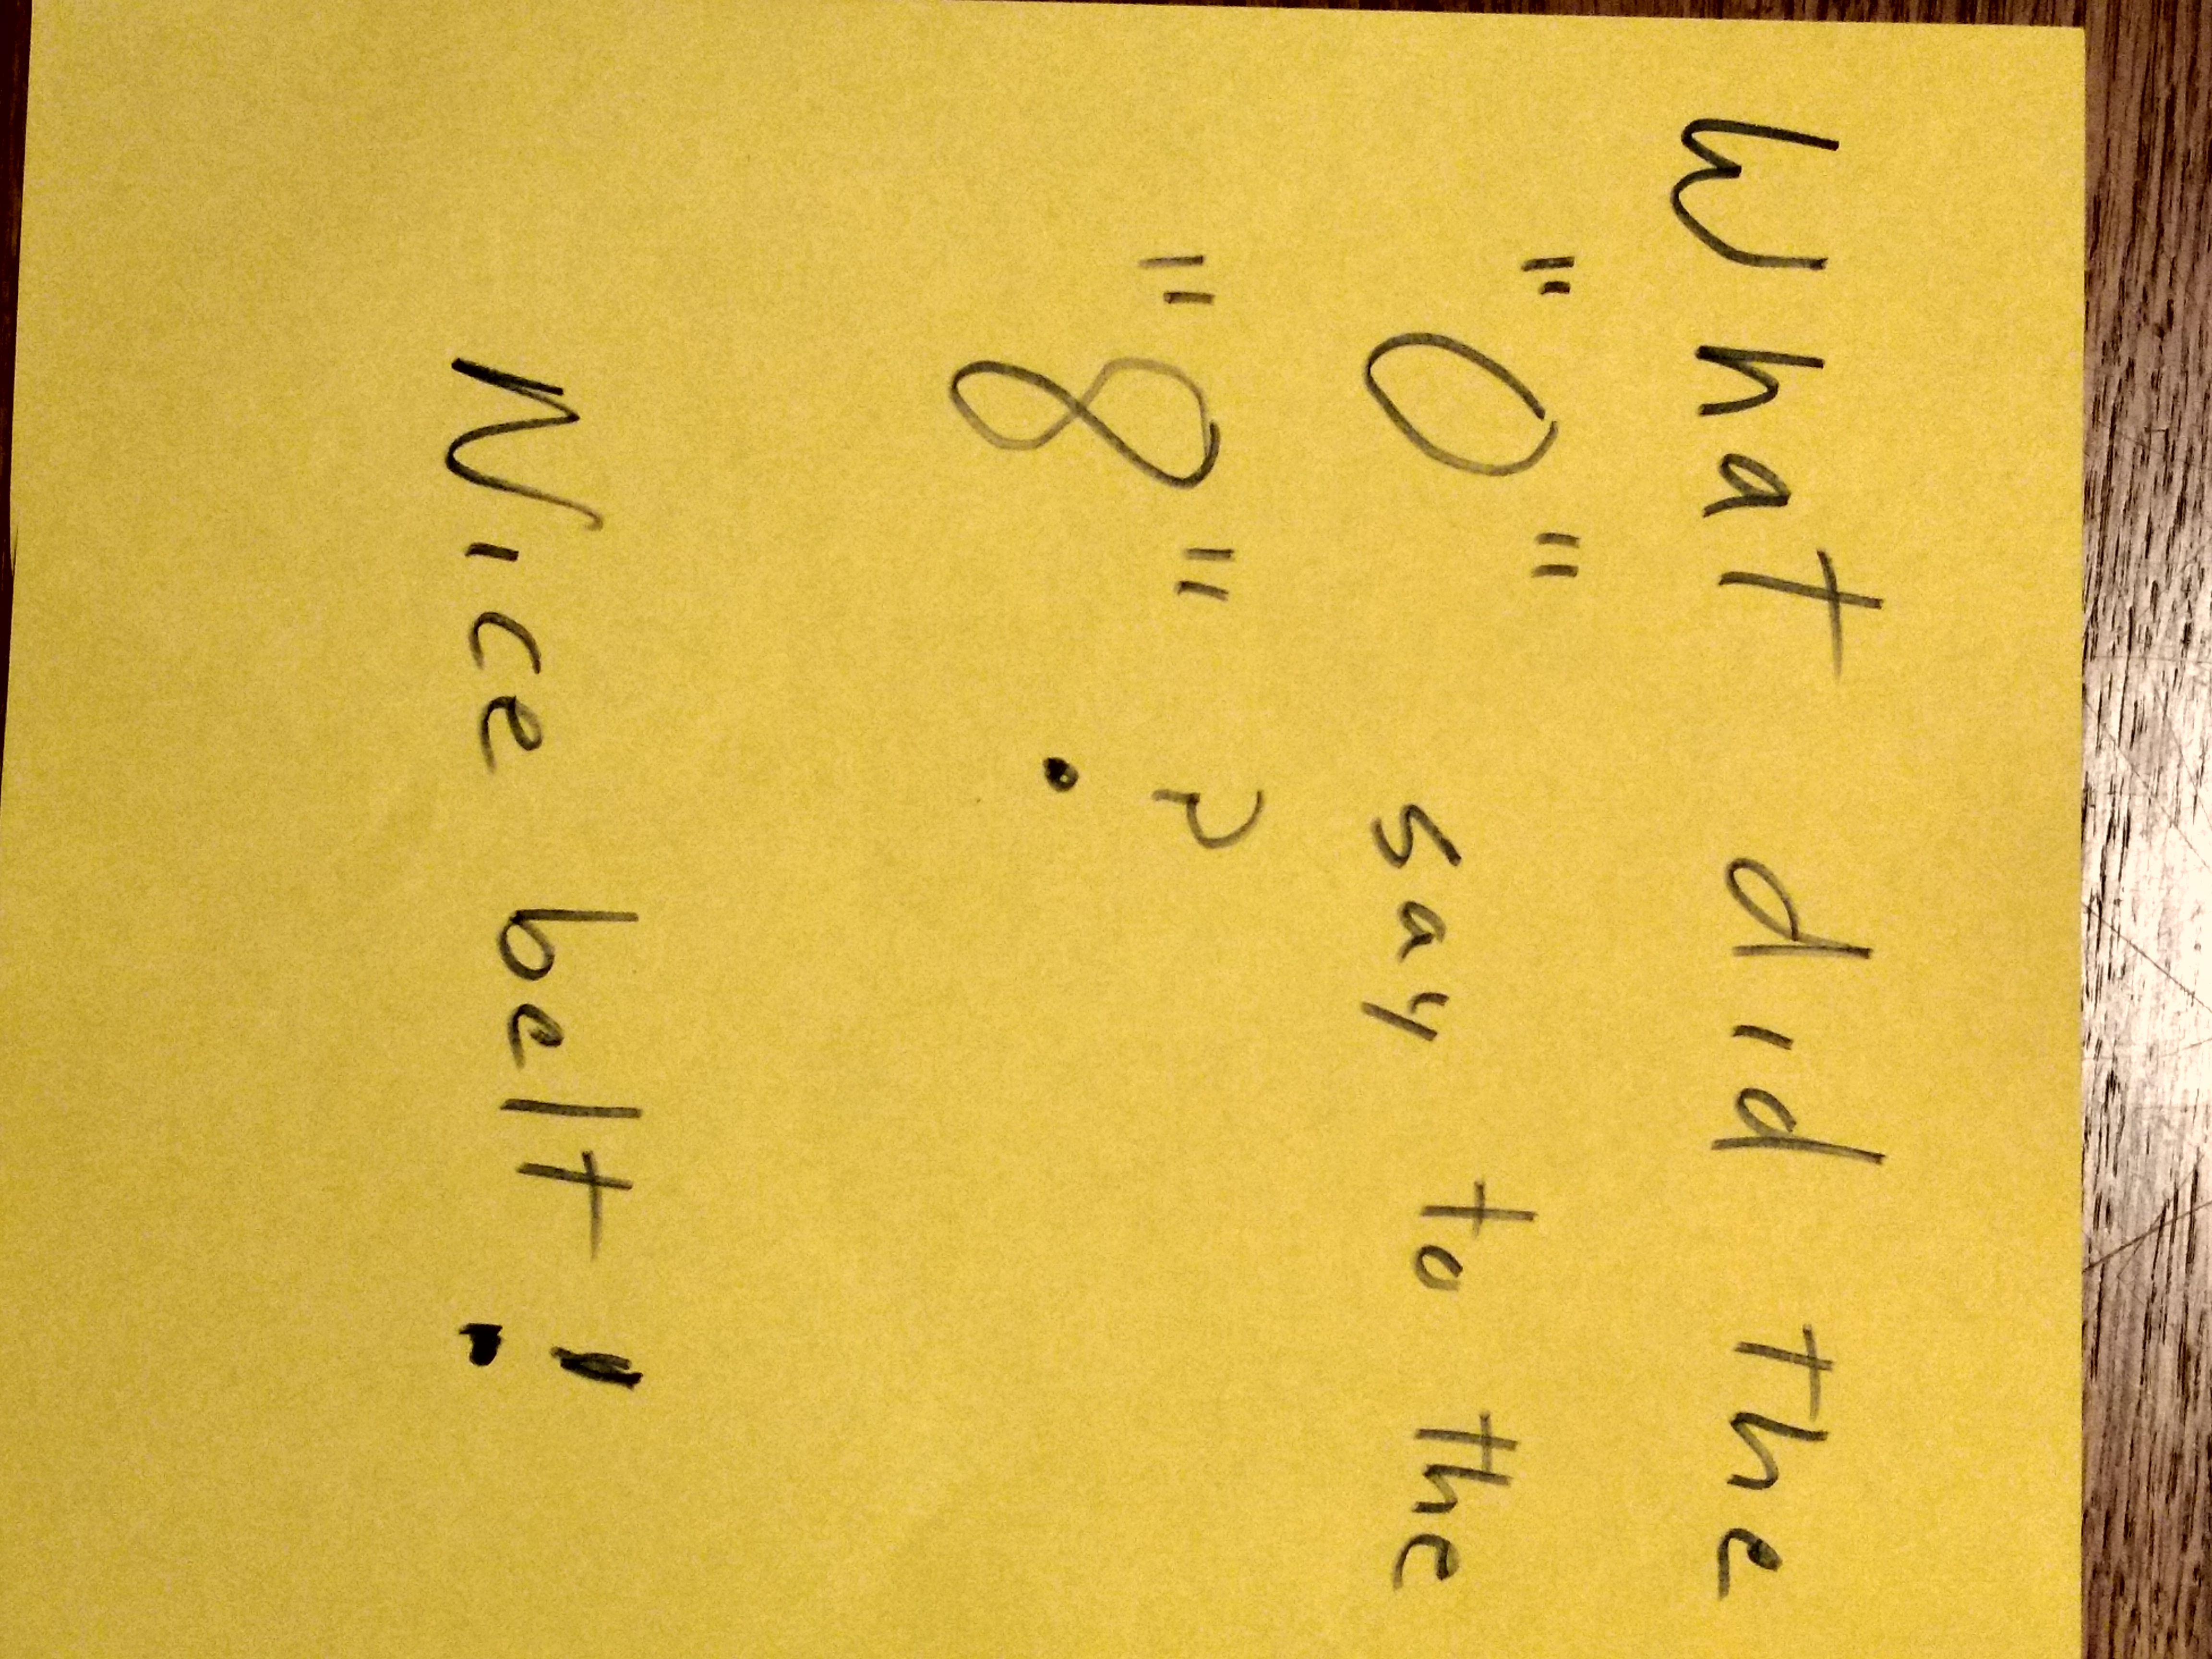 What did the
"0" say to the
"8"?
Nice belt!